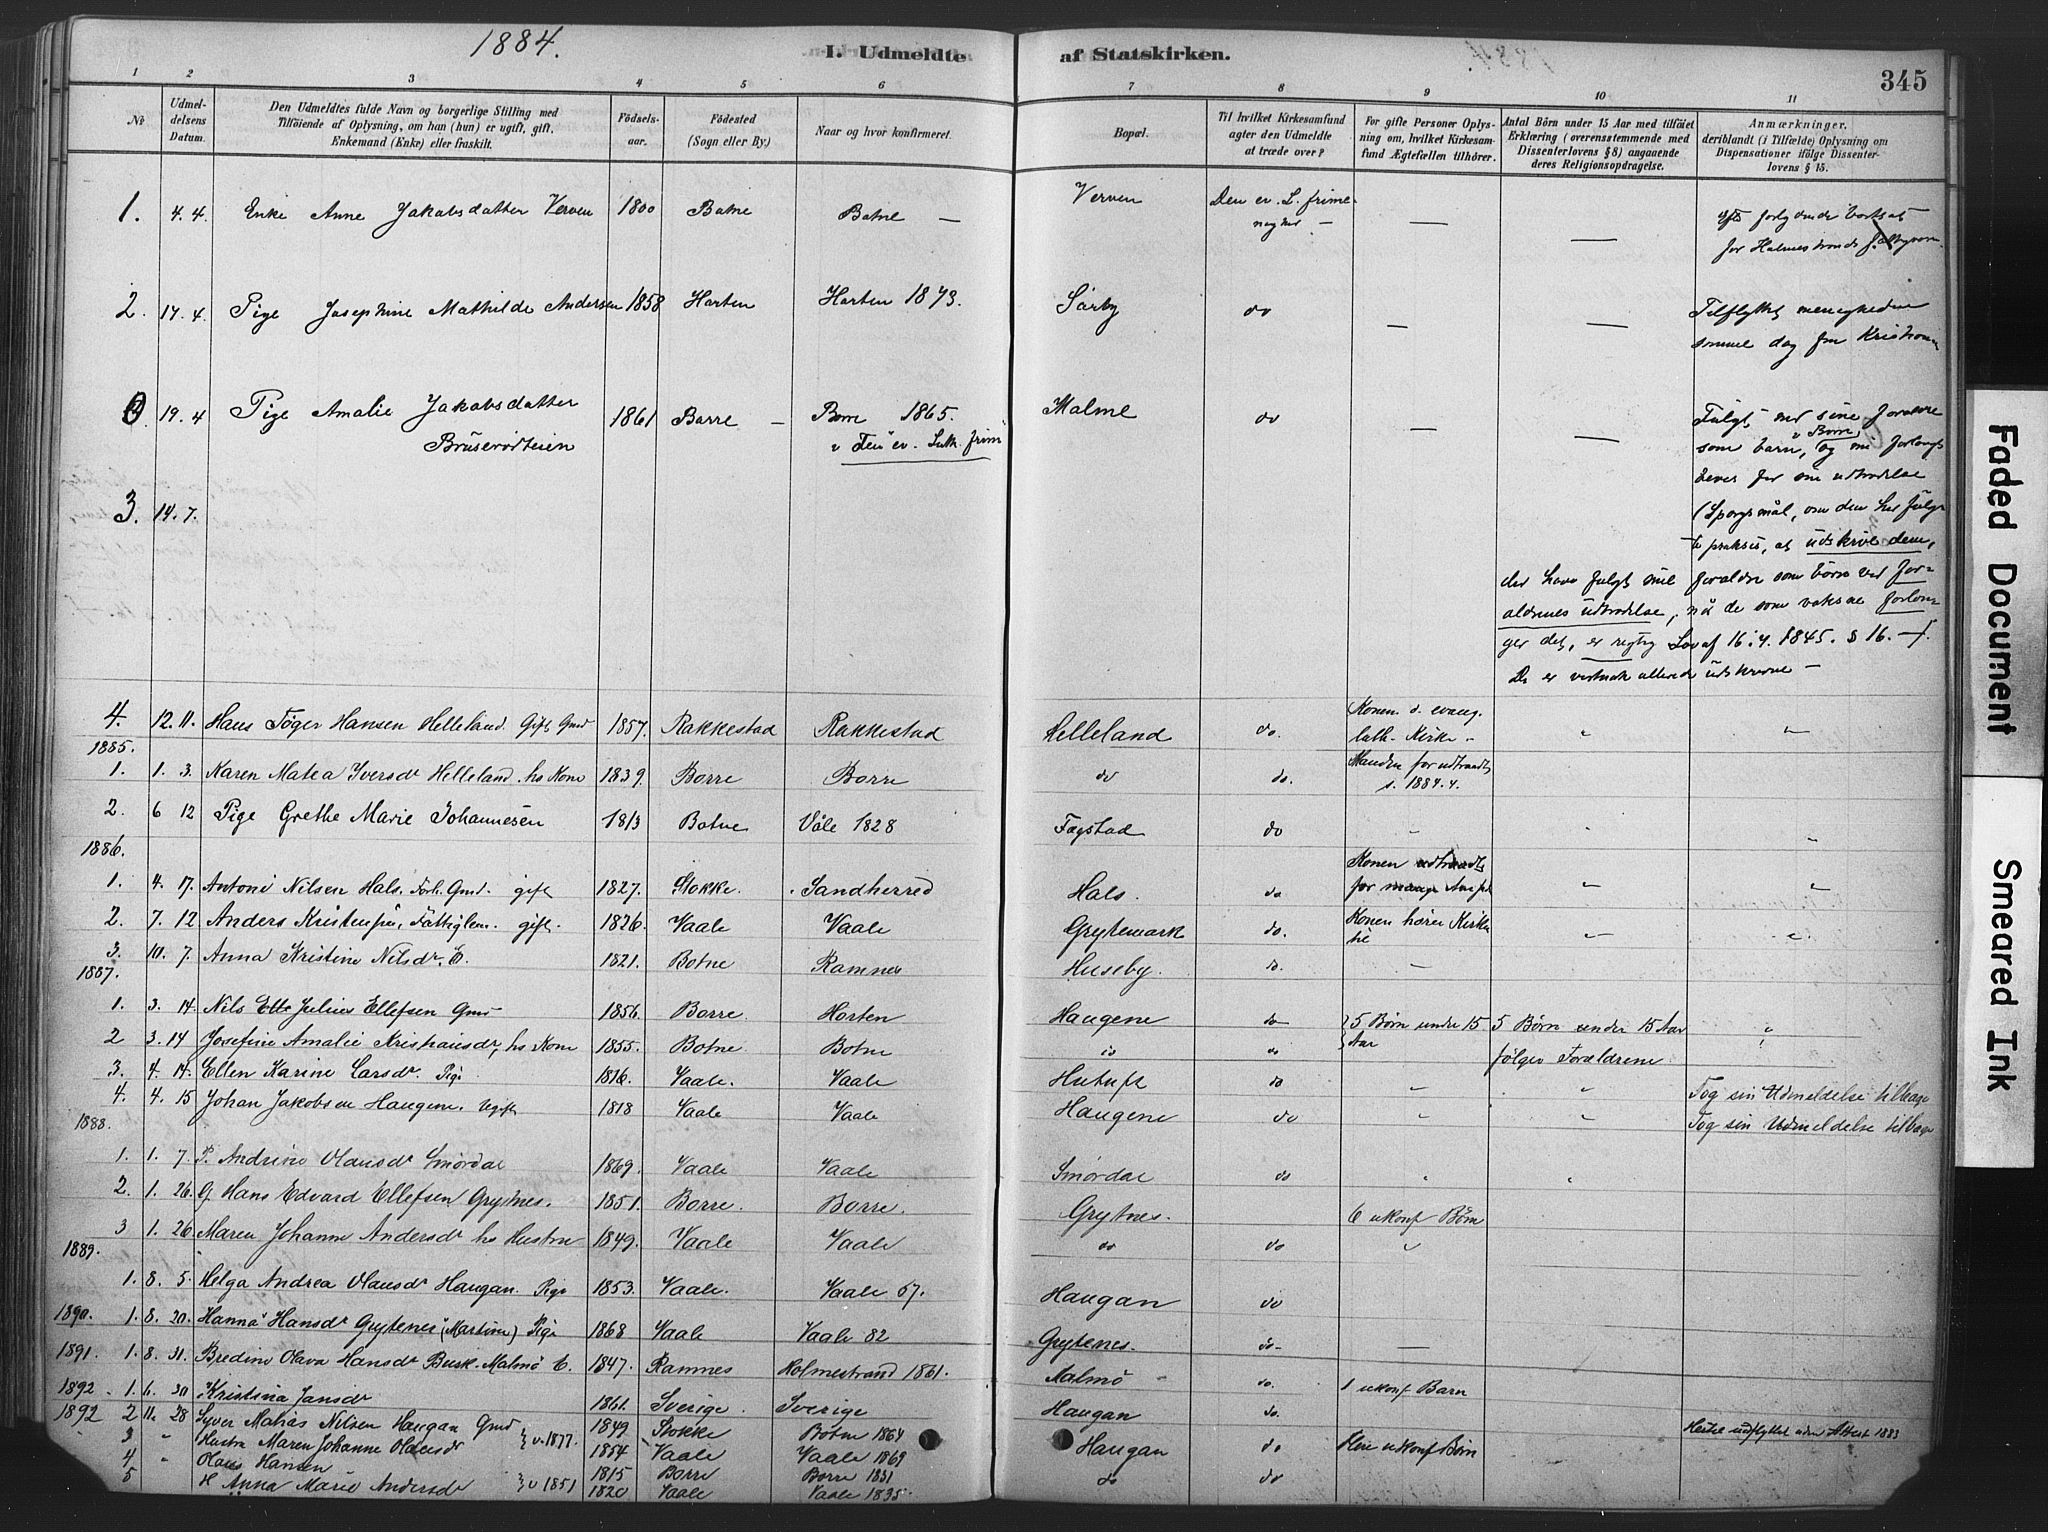 1884.
I. Udmeldte af Statskirken.
345
1 2 3 4 5 6 7 8 9 10 11
No
Udmeldelsens Datum.
Den Udmeldtes fulde Navn og borgerlige Stilling med Tilföiende af Oplysning, om han (hun) er ugift, gift, Enkemand (Enke) eller fraskilt.
Födselsaar.
Födested (Sogn eller By.)
Naar og hvor konfirmeret.
Bopæl.
Til hvilket Kirkesamfund agter den Udmeldte at træde over?
For gifte Personer Oplysning om, hvilket Kirkesamfund Ægtefællen tilhörer.
Antal Börn under 15 Aar med tilföiet Erklæring (overensstemmende med Dissenterlovens § 8) angaaende deres Religionsopdragelse.
Anmærkninger, deriblandt (i Tilfælde) Oplysning om Dispensationer ifölge Dissenterlovens § 15.
1. 4. 4. Enke Anne Jakobsdatter Verven 1800 Botne Botne — Verven Den ev. L. frime- — —
nighed —
for Holmestrands
2. 17. 4. Pige Josephine Mathilde Andersen 1858 Horten Horten 1873. Sörby do — — Tilflyttet menigheden
samme dag fra
19. 4 Pige Amalie Jakobsdatter 1861 Borre — Borre 1865. Malmö do — — Fulgt med sine forældre
Brüserödteien v. Den ev. Luth. frim som barn, v Borre og nu
for sin udtrædelse
3. 14. 7. (Spørgsmål, om den her
praksis, at udskrive dem,
der have fulgt sine forældre som börn ved for-
ældrenes udtrædelse, når de som voksne forlan-
ger det, er rigtig Lov af 16. 7. 1845. § 16. —
De er allerede udskrevne —
4. 12. 11. Hans Töger Hansen Helleland. Gift Gmd 1857. Rakkestad Rakkestad Helleland do. Konen d. evang. luth. Kirke — " "
1885.
1. 1. 3. Karen Matea Iversdr Helleland. hs Kone 1839. Borre Borre do do. Manden før udtraadt s. 1884. 4.
2. 6 12 Pige Grethe Marie Johannesen 1813 Botne Våle 1828 Fagstad do " " "
1886.
1. 4. 17. Antoni Nilsen Hals. Forh. Gmd. gift 1827. Stokke. Sandherred Hals. do Konen udtraadt for mange Aar " "
2. 7. 12 Anders Kristensen, Fattiglem. gift. 1826. Vaale Vaale Grytemark do. Konen hører Kirken til " "
3. 10. 7. Anna Kristine Nilsdr. E. 1821. Botne Ramnes Huseby. do. —
1887.
1. 3. 14. Nils Julius Ellefsen Gmd 1856. Borre. Horten Haugene do 5 Børn under 15 Aar 5 Børn under 15 Aar "
2 3. 14 Josefine Amalie Kristiansdr, hs Kone 1855. Botne. Botne do do følger Forældrene
3. 4. 14. Ellen Karine Larsdr. Pige 1816. Vaale. Vaale Hutuft do " " Tog sin Udmeldelse tilbage
4. 4. 15 Johan Jakobsen Haugene. Ugift 1818 Vaale Vaale Haugene do " " Tog sin Udmeldelse tilbage
1888.
1. 1. 7. P. Andrine Olausdr Smørdal 1869. Vaale Vaale Smørdal do " "
2. 1. 26. G. Hans Edvard Ellefsen Grytnes. 1851. Borre. Borre. Grytnes. 6 ukonf Børn
3 1. 26 Maren Johanne Andersdr hs Hustru 1849. Vaale Vaale do do "
1889.
1. 8. 5. Helga Andrea Olausdr Haugan. Pige 1853. Vaale. Vaale 67. Haugan do
1890. 1. 8. 20. Hanna Hansdr Grytenes (Martine) Pige 1868 Vaale Vaale 82 Grytenes. do — —
1891. 1. 8. 31. Bredine Olava Hansdr Busk. Malmö E. 1847. Ramnes Holmestrand 1861. Malmö do. 1 ukonf Barn
1892 1. 6. 30 Kristina Jansdr 1861. Sverige. Sverige Haugan do.
1892 2 11. 28 Syver Matias Nilsen Haugan Gmd 1849 Stokke Botne 1864 Haugan do Flere ukonf Børn Herfra udflyttet uden Attest 1883
3 " Hustru Maren Johanne Olausdr v. 1877. 1854 Vaale Vaale 1869
4 " Hans Hansen 1815 Borre Borre 1831 do do
5 H Anna Marie Andersdr v 1851 1820 Vaale Vaale 1835.
Faded Document
Smeared Ink